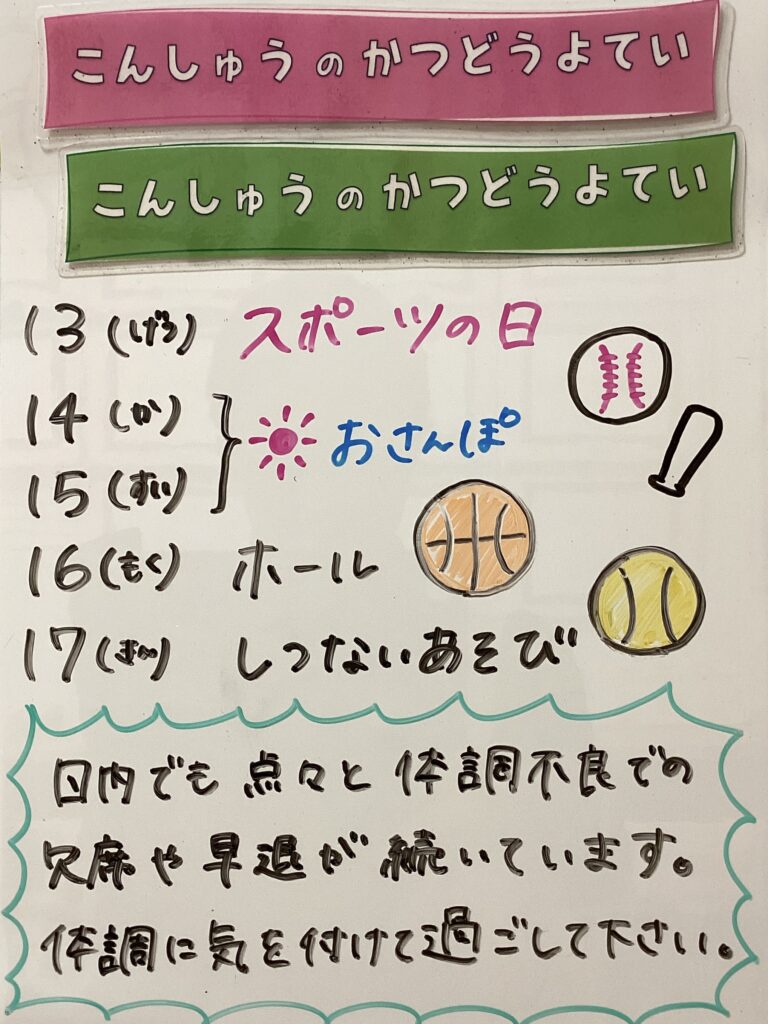 こんしゅうのかつどうよてい
こんしゅうのかつどうよてい
13(げつ) スポーツの日
14(か)
おさんぽ
15(すい)
16(もく) ホール
17(きん) しつないあそび
口内でも点々と体調不良での
欠席や早退が続いています。
体調に気を付けて過ごして下さい。